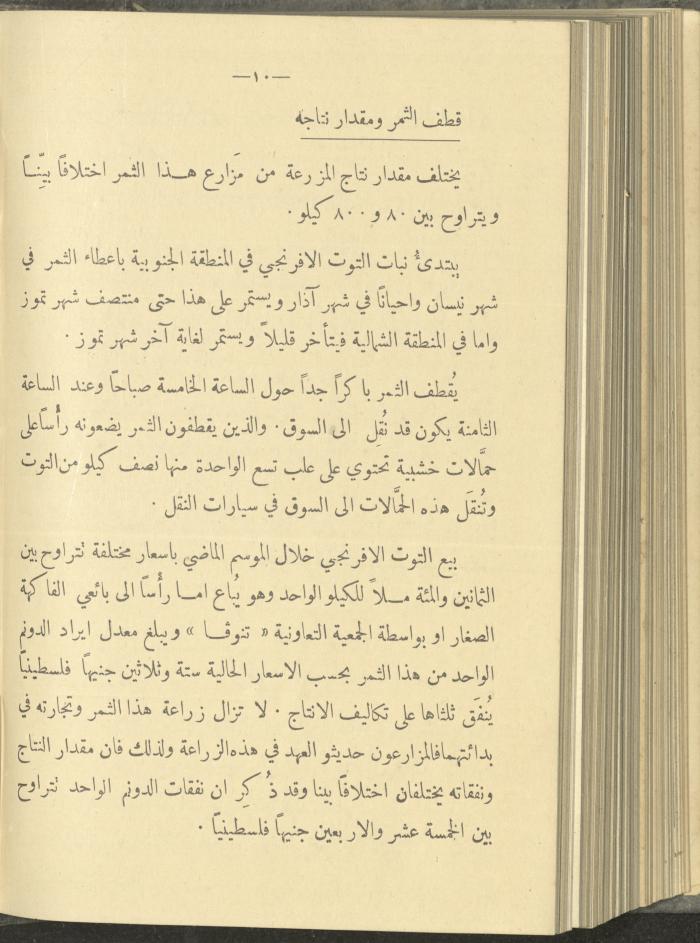 —١٠—
قطف الثمر ومقدار نتاجه
يختلف مقدار نتاج المزرعة من مَزارع هـذا الثمر اختلافاً بيِّنـاً
ويتراوح بين ٨٠ و ٨٠٠ كيلو ٠
يبتدئُ نبات التوت الافرنجي في المنطقة الجنوبية باعطاء الثمر في
شهر نيسان واحياناً في شهر آذار ويستمر على هذا حتى منتصف شهر تموز
واما في المنطقة الشمالية فيتأخر قليلاً ويستمر لغاية آخر شهر تموز ٠
يُقطف الثمر باكراً جداً حول الساعة الخامسة صباحاً وعند الساعة
الثامنة يكون قد نُقِل الى السوق ٠ والذين يقطفون الثمر يضعونه رأْساً على
حمَّالات خشبية تحتوي على علب تسع الواحدة منها نصف كيلو من التوت
وتُنقَل هذه الحمَّالات الى السوق في سيارات النقل ٠
بيع التوت الافرنجي خلال الموسم الماضي باسعار مختلفة تتراوح بين
الثمانين والمئة مـلاً للكيلو الواحد وهو يُباع امـا رأْساً الى بائعي الفاكهة
الصغار او بواسطة الجمعية التعاونية « تنوفـا » ويبلغ معدل ايراد الدونم
الواحد من هذا الثمر بحسب الاسعار الحالية ستة وثلاثين جنيهاً فلسطينيّاً
يُنفَق ثلثاها على تكاليف الانتاج ٠ لا تزال زراعة هذا الثمر وتجارته في
بدائتهما فالمزارعون حديثو العهد في هذه الزراعة ولذلك فان مقدار النتاج
ونفقاته يختلفان اختلافاً بينا وقد ذُكِر ان نفقات الدونم الواحد تتراوح
بين الخمسة عشر والاربعين جنيهاً فلسطينيّاً ٠